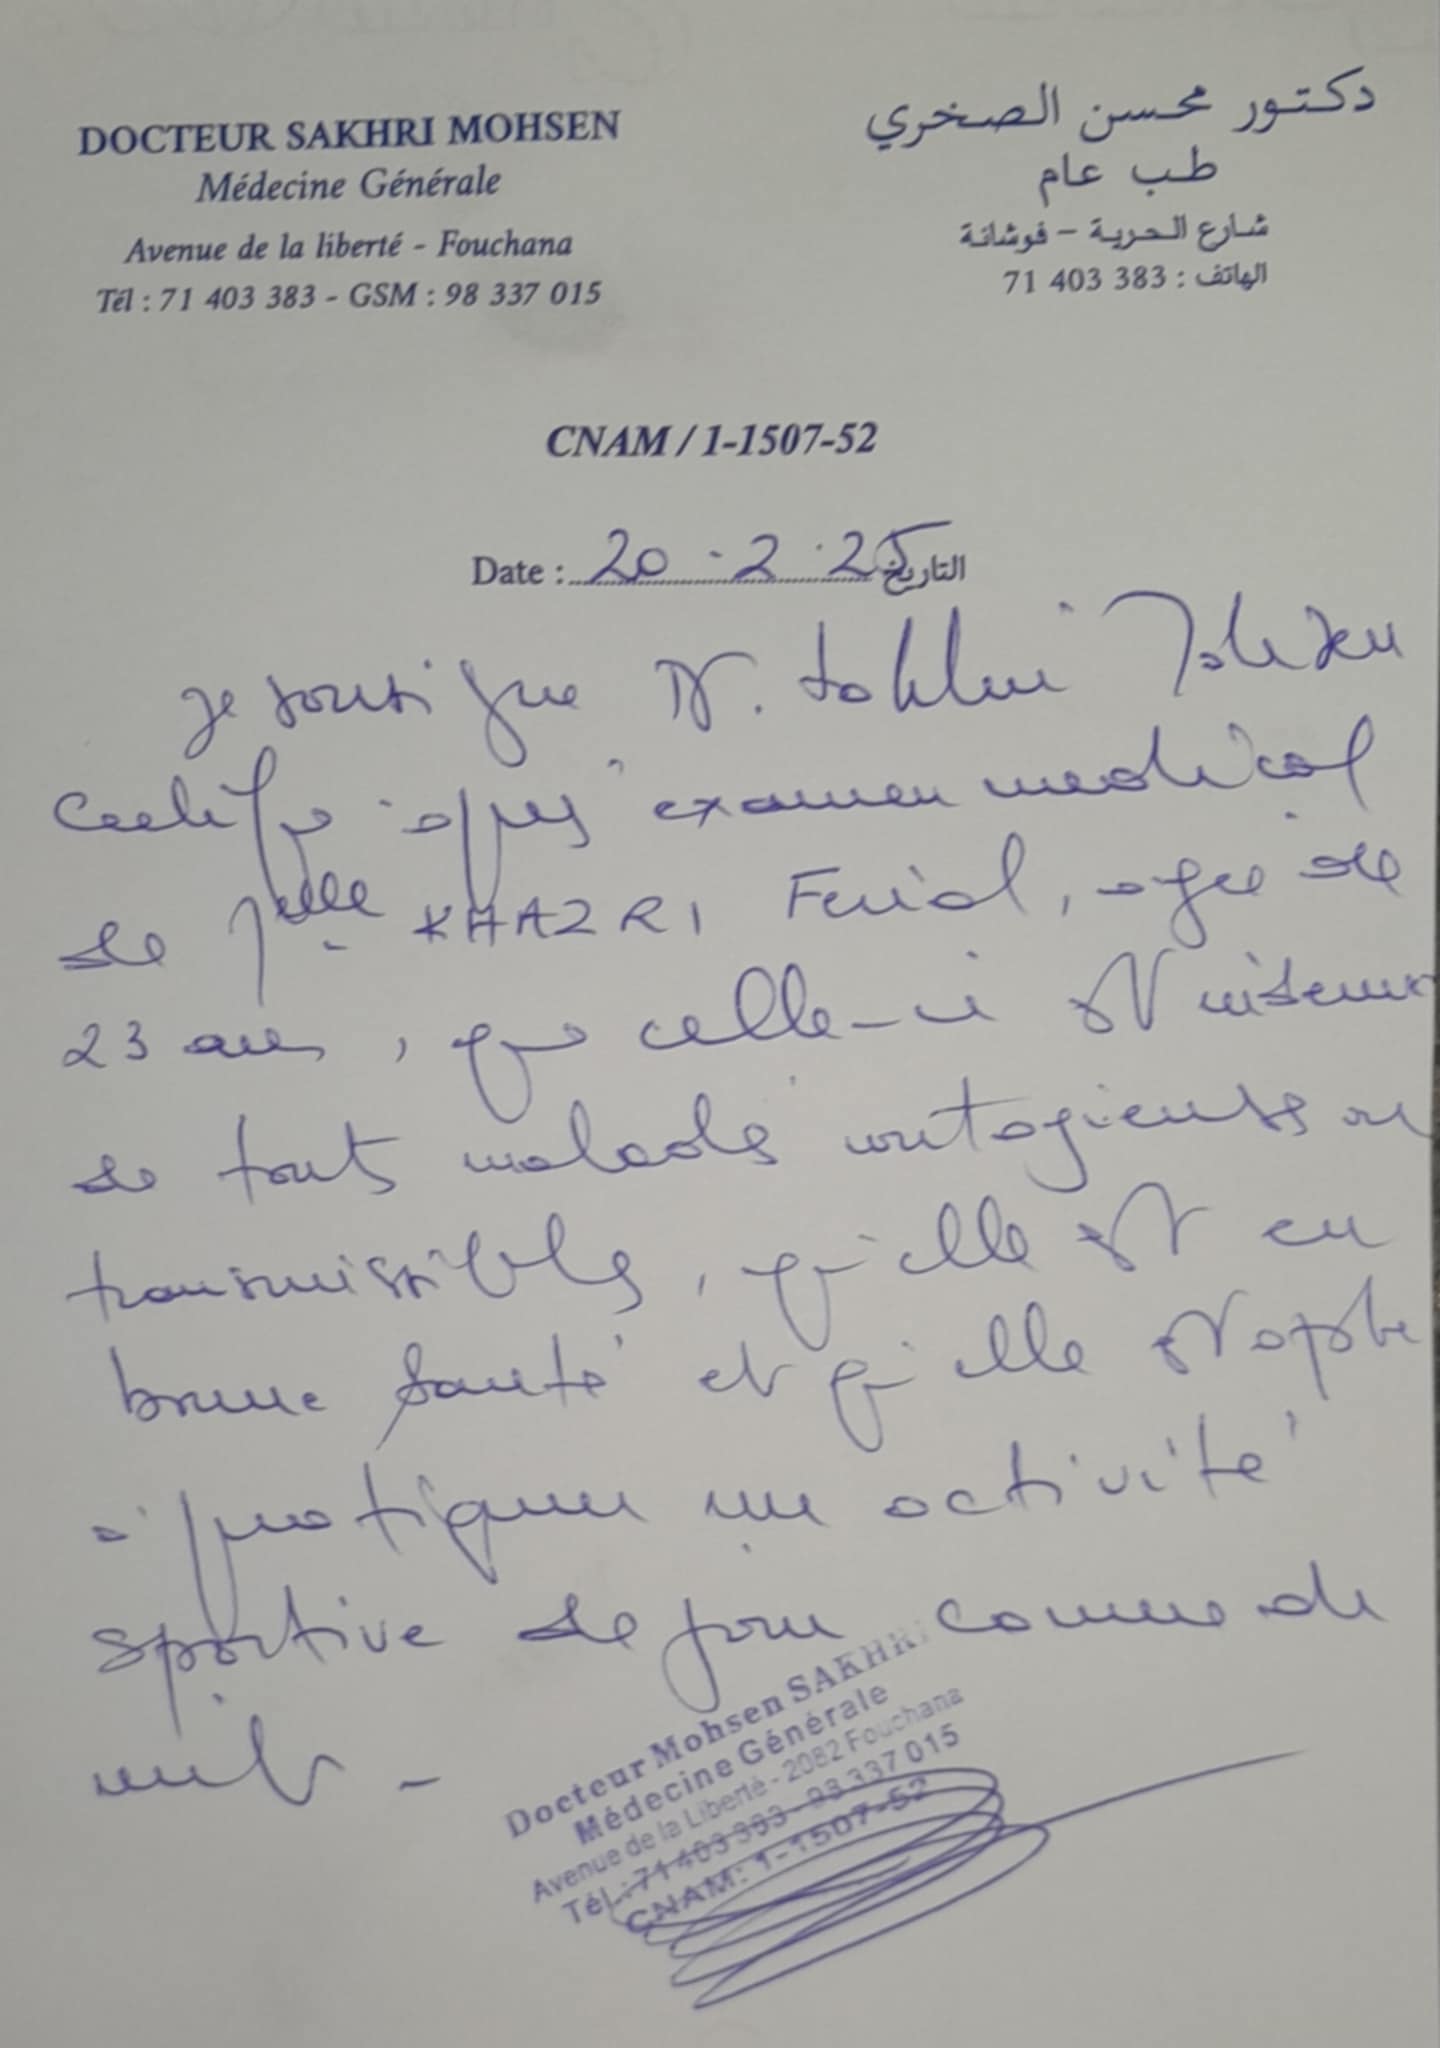 DOCTEUR SAKHRI MOHSEN
Médecine Générale
Avenue de la liberté - Fouchana
Tél : 71 403 383 - GSM : 98 337 015
دكتور محسن الصخري
طب عام
شارع الحرية - فوشانة
الهاتف : 383 403 71
CNAM / 1-1507-52
Date : 20 - 2 . 25 التاريخ
Je soussigné Dr. Sakhri Mohsen
Certifie après examen médical
de Melle KHAZRI Ferial, agée de
23 ans, que celle-ci est indemne
de touts maladies contagieuses ou
transmissibles, qu'elle est en
bonne santé et qu'elle est apte
à pratiquer une activité
sportive de jour comme de
nuit -
Docteur Mohsen SAKHRI
Médecine Générale
Avenue de la Liberté - 2082 Fouchana
Tél.: 71 403 393 - 98 337 015
CNAM: 1-1507-52